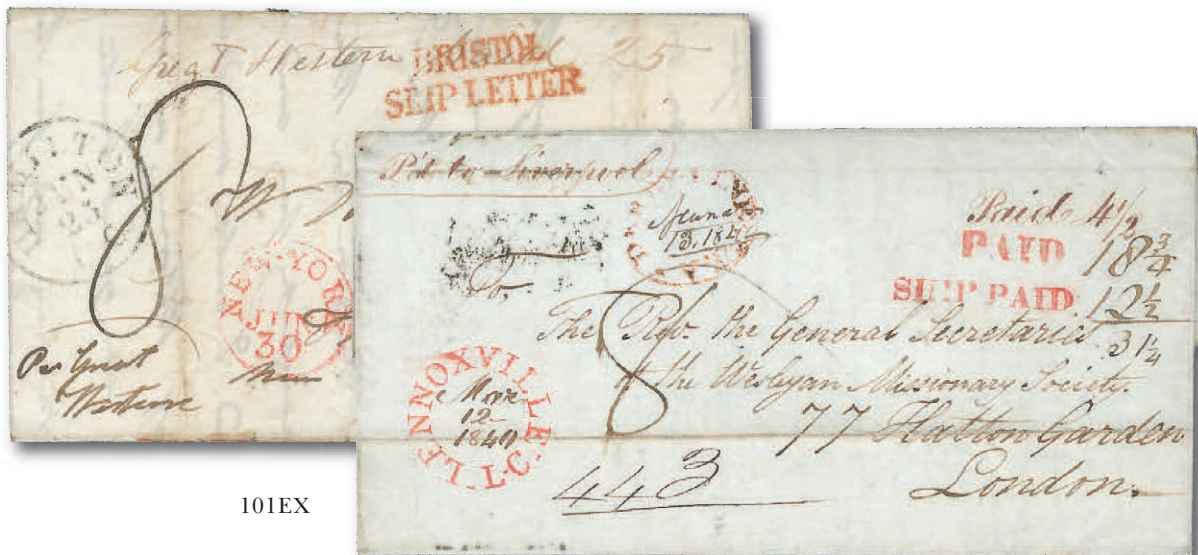 Great Western 25
BRISTOL
SHIP LETTER
8
NEW-YORK
JUN
30
Per Great
Western
Pd to Liverpool
13, 184
Paid 4½
PAID
18¾
SHIP PAID
12½
31¼
To,
The Revd. the General Secretaries
of the Wesleyan Missionary Society.
77 Hatton Garden
London.
8
LENNOXVILLE L.C.
Mar
12
1840
443
101EX